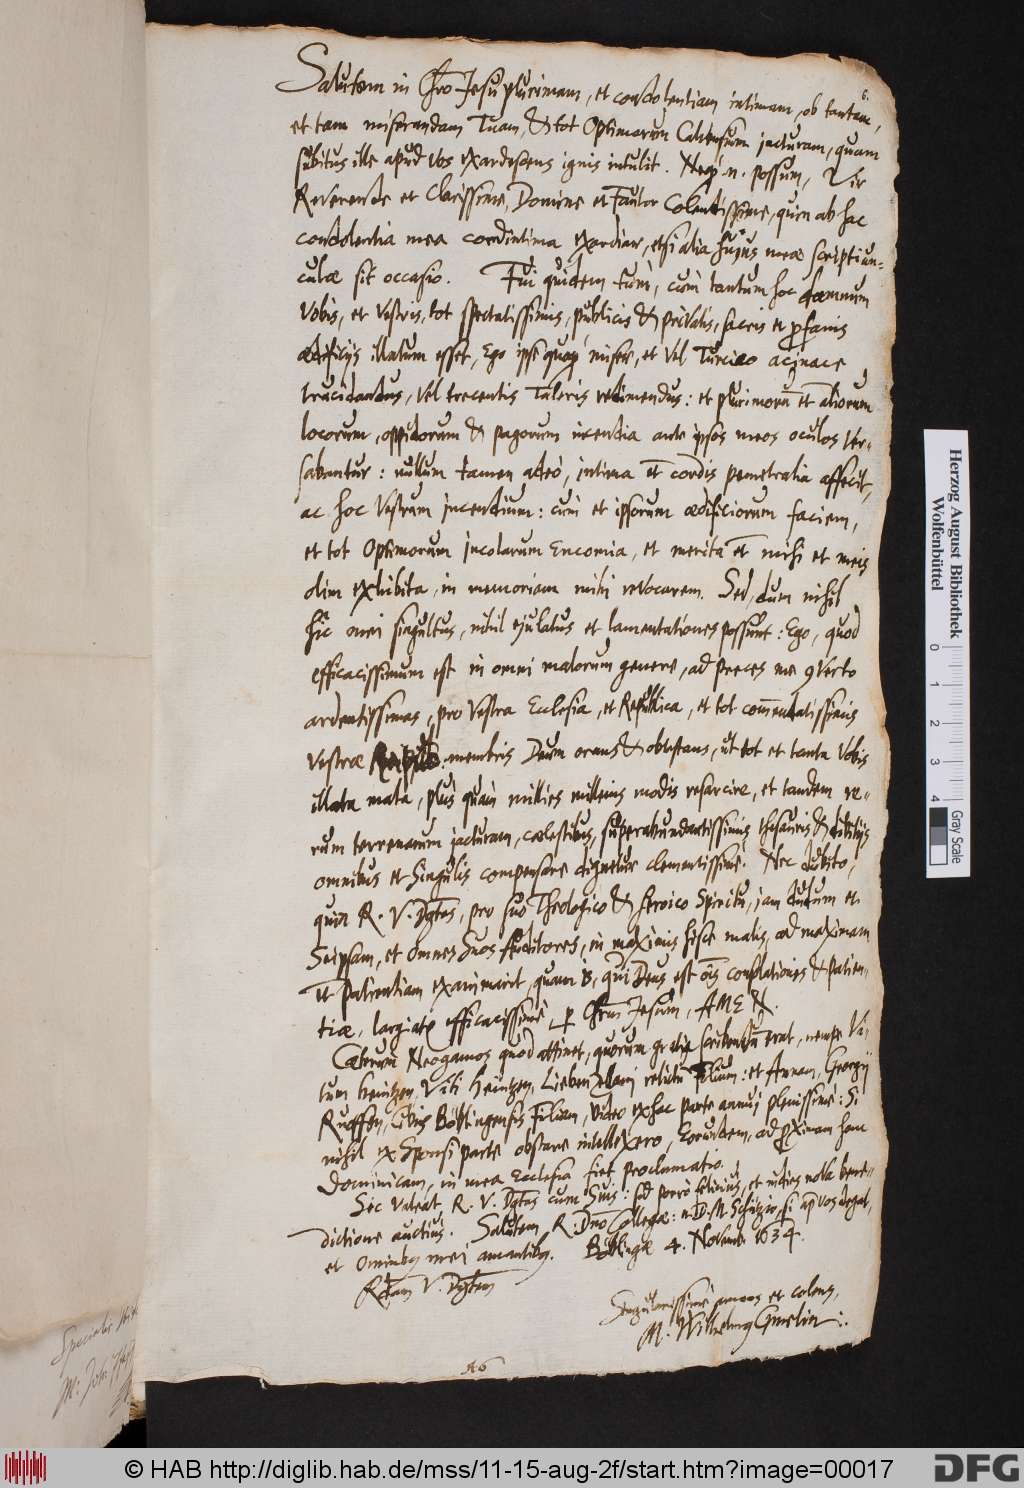 6.
Salutem in Chro Jesu plurimam, et condolentiam intimam, ob tantam,
et tam miserandam Tuam, & tot Optimorum Calvensium jacturam, quam
subitus ille apud vos exardescens ignis intulit. Neq; .n. possum, Vir
Reverende et Clarissime, Domine et Fautor Colendissime, quin ab hac
condolentia mea cordintima exordiar, etsi alia hujus meae scriptiun-
culae sit occasio. Fui quidem tum, cum tantum hoc damnum
Vobis, et Vestris, tot spectatissimis, publicis & privatis, sacris et profanis
aedificijs illatum esset, Ego ipse quoq; miser, et vel Turcico acinace
trucidandus, vel trecentis Taleris redimendus: et plurimorum et aliorum
locorum, oppidorum & pagorum incendia ante ipsos meos oculos ver-
sabantur: nullum tamen adeò, intima et cordis penetralia affecit,
ac hoc Vestrum incendium: cum et ipsorum aedificiorum faciem,
et tot Optimorum incolarum Encomia, et merita et mihi et meis
olim exhibita, in memoriam mihi revocarem. Sed, dum nihil
hic mei singultus, nihil ejulatus et lamentationes possunt: Ego, quod
efficacissimum est in omni malorum genere, ad preces me converto
ardentissimas, pro Vestra Ecclesia, et Republica, et tot commendatissimis
Vestrae membris Deum orans & obtestans, ut tot et tanta Vobis
illata mala, plus quam millies millenis modis resarcire, et tandem re-
rum terrenarum jacturam, coelestibus, superabundantissimis thesauris & divitijs
omnibus et singulis compensare dignetur clementissime. Nec dubito,
quin R. V. Dgtas, pro suo Theologico & heroico Spiritu, jam dudum et
Seipsam, et omnes suos Auditores, in maximis hisce malis, ad maximam
et patientiam exanimarit, quam is, qui Deus est ois consolationis & patien-
tiae, largiatr efficacissimè, per Chrm Jesum, AMEN.
Caeterum Neogamos quod attinet, quorum gratia scribendum erat, nempe Vi-
tum Heintzen, Viti Heintzen, Liebenzellani relictum filium: et Annam, Georgij
Ruoffen, Civis Böblingensis Filiam, video ex hac parte annuj plenissimè: Si
nihil ex Sponsi parte obstare intellexero, Eorundem, ad proximam hanc
Dominicam, in mea Ecclesia fiet proclamatio.
Sic Valeat, R. V. Dgtas cum Suis: sed porrò felicius, et indies nova bene-
dictione auctius. Salutem R. Dno Collegae: n. D. M. Schizio, si ap vos degat,
et omnibus mei amantibus. Böblingae 4. Novemb 1634.
Rdam V. Dgtem
Singularissimè amans et colens,
M. Wilhelmus Gmelin:.
Specialis
M: Joh:
Herzog August Bibliothek
Wolfenbüttel
0 1 2 3 4
Gray Scale
© HAB http://diglib.hab.de/mss/11-15-aug-2f/start.htm?image=00017
DFG